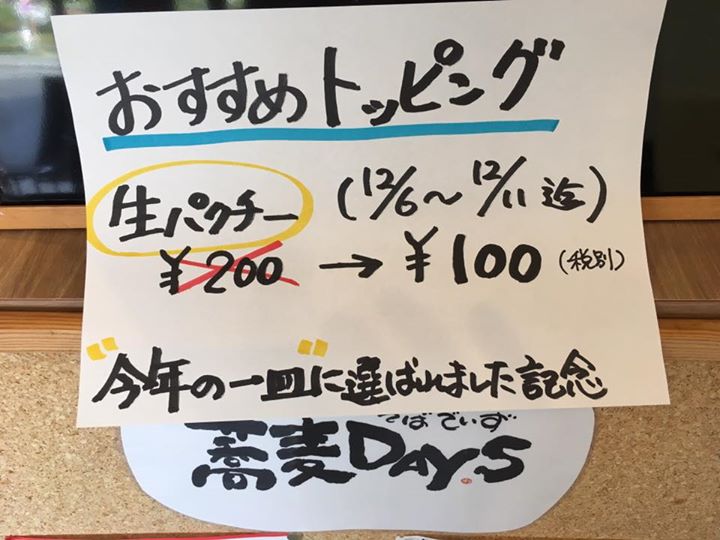 おすすめトッピング
生パクチー (12/6〜12/11迄)
¥200 → ¥100 (税別)
"今年の一皿"に選ばれました記念
そばでいず
蕎麦DAY.S